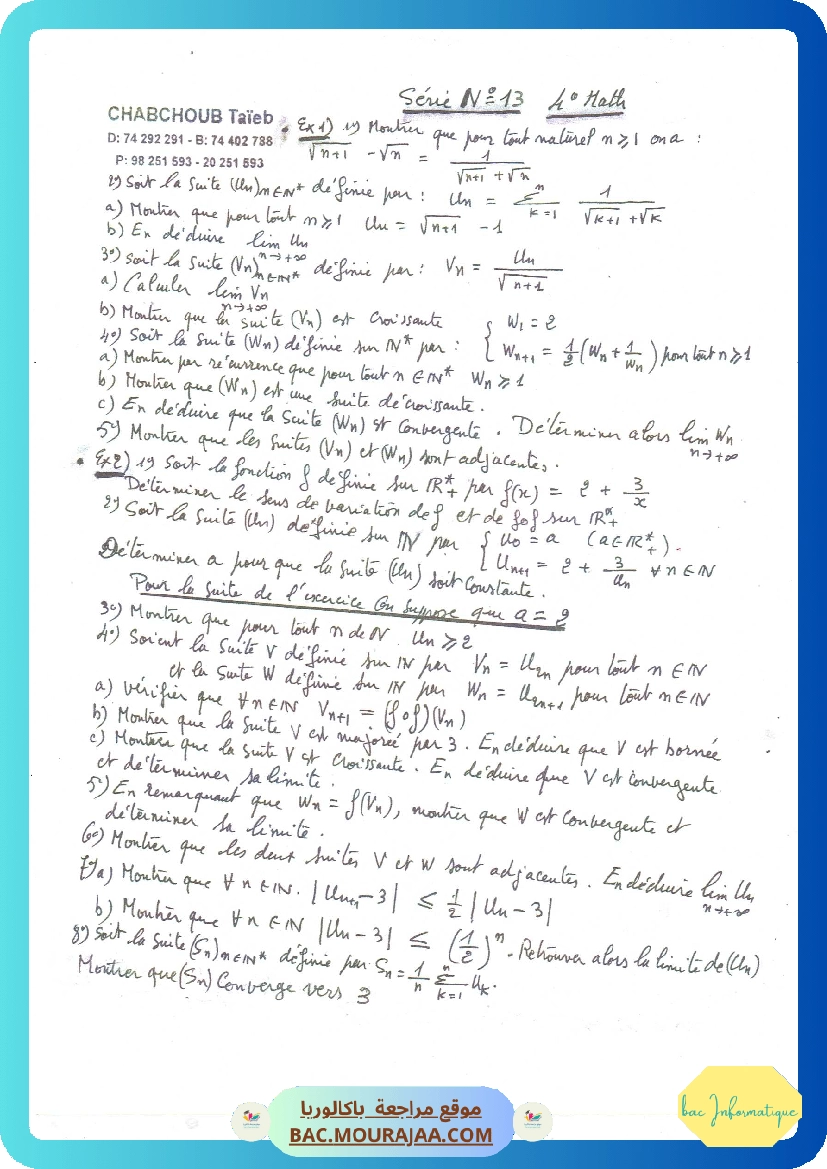 Série Nº13 4° Math
CHABCHOUB Taïeb
D: 74 292 291 - B: 74 402 788
P: 98 251 593 - 20 251 593
Ex1) 1°) Montrer que pour tout naturel n ≥ 1 on a :
√(n+1) - √n = 1/(√(n+1) + √n)
2°) Soit la suite (Un)n∈IN* définie par : Un = Σ(k=1→n) 1/(√(k+1) + √k)
a) Montrer que pour tout n ≥ 1 Un = √(n+1) - 1
b) En déduire lim Un n→+∞
3°) Soit la suite (Vn)n∈IN* définie par : Vn = Un/√(n+1)
a) Calculer lim Vn n→+∞
b) Montrer que la suite (Vn) est croissante
4°) Soit la suite (Wn) définie sur IN* par : { W1 = 2
Wn+1 = 1/2 (Wn + 1/Wn) pour tout n ≥ 1
a) Montrer par récurrence que pour tout n ∈ IN* Wn ≥ 1
b) Montrer que (Wn) est une suite décroissante.
c) En déduire que la suite (Wn) est convergente. Déterminer alors lim Wn n→+∞
5°) Montrer que les suites (Vn) et (Wn) sont adjacentes.
Ex2) 1°) Soit la fonction f définie sur IR*+ par f(x) = 2 + 3/x
Déterminer le sens de variation de f et de fof sur IR*+
2°) Soit la suite (Un) définie sur IN par { U0 = a (a ∈ IR*+).
Un+1 = 2 + 3/Un ∀ n ∈ IN
Déterminer a pour que la suite (Un) soit constante.
Pour la suite de l'exercice on suppose que a = 2
3°) Montrer que pour tout n de IN Un ≥ 2
4°) Soient la suite V définie sur IN par Vn = U2n pour tout n ∈ IN
et la suite W définie sur IN par Wn = U2n+1 pour tout n ∈ IN
a) Vérifier que ∀ n ∈ IN Vn+1 = (fof)(Vn)
b) Montrer que la suite V est majorée par 3. En déduire que V est bornée
c) Montrer que la suite V est croissante. En déduire que V est convergente
et déterminer sa limite.
5°) En remarquant que Wn = f(Vn), montrer que W est convergente et
déterminer sa limite.
6°) Montrer que les deux suites V et W sont adjacentes. En déduire lim Un n→+∞
7°) a) Montrer que ∀ n ∈ IN. |Un+1 - 3| ≤ 1/2 |Un - 3|
b) Montrer que ∀ n ∈ IN |Un - 3| ≤ (1/2)^n. Retrouver alors la limite de (Un)
8°) Soit la suite (Sn)n∈IN* définie par Sn = 1/n Σ(k=1→n) Uk.
Montrer que (Sn) converge vers 3
موقع مراجعة باكالوريا
BAC.MOURAJAA.COM
bac Informatique